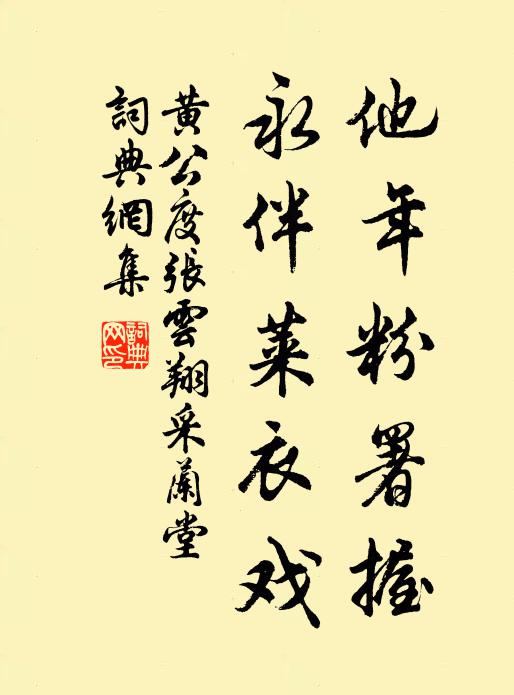 他年粉署握
永伴莱衣戏
黄公度張雲翔采蘭堂
詞典網集
詞典网印